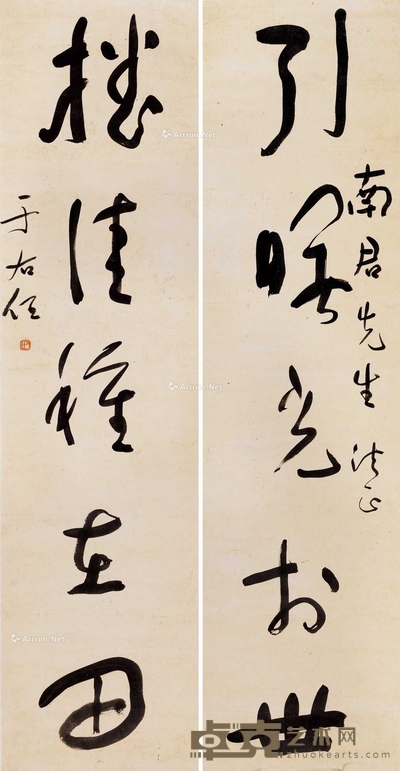 引曙光於世
南君先生 法正
播佳種在田
于右任
Artron.Net
卓克艺术网
zhuokearts.com